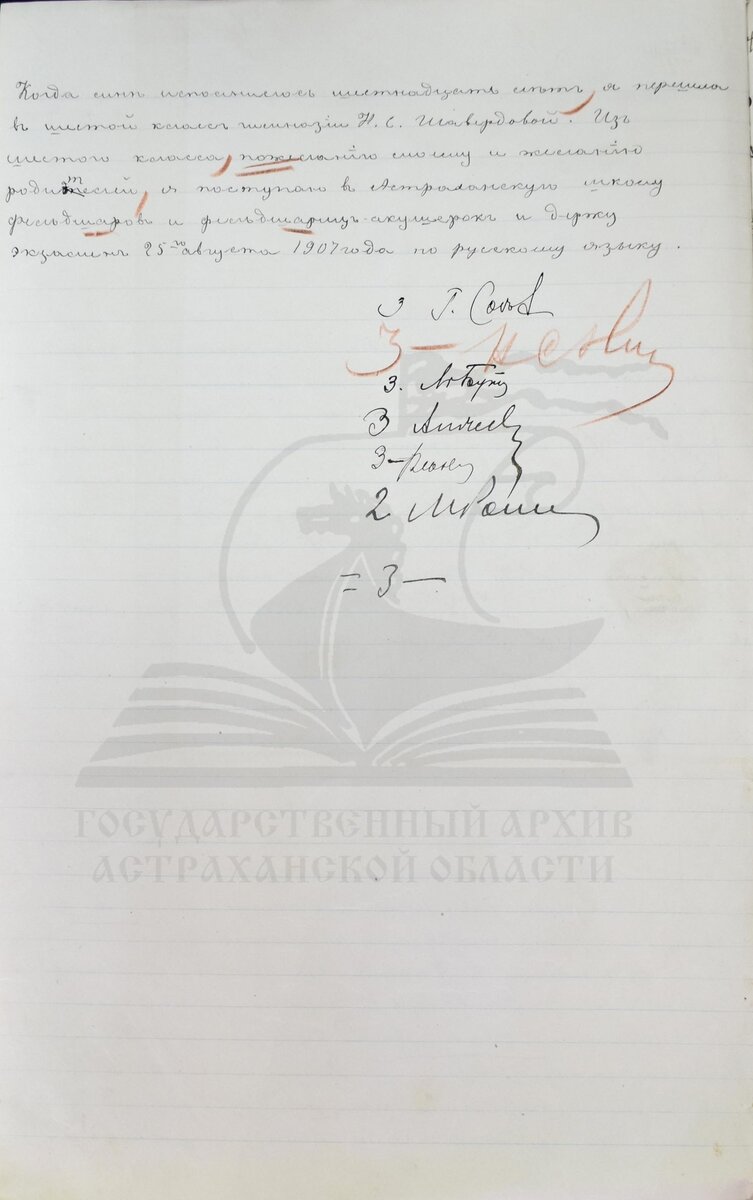 Когда мнѣ исполнилось шестнадцать лѣтъ, я перешла
въ шестой классъ гимназіи Н. С. Шавердовой. Изъ
шестого класса, пожеланію моему и желанію
родителей, я поступаю в Астраханскую школу
фельдшаровъ и фельдшарицъ-акушерокъ и держу
экзаменъ 25го августа 1907 года по русскому языку.
3 Г.
3 —
3.
3
3 —
2
= 3 —
ГОСУДАРСТВЕННЫЙ АРХИВ
АСТРАХАНСКОЙ ОБЛАСТИ